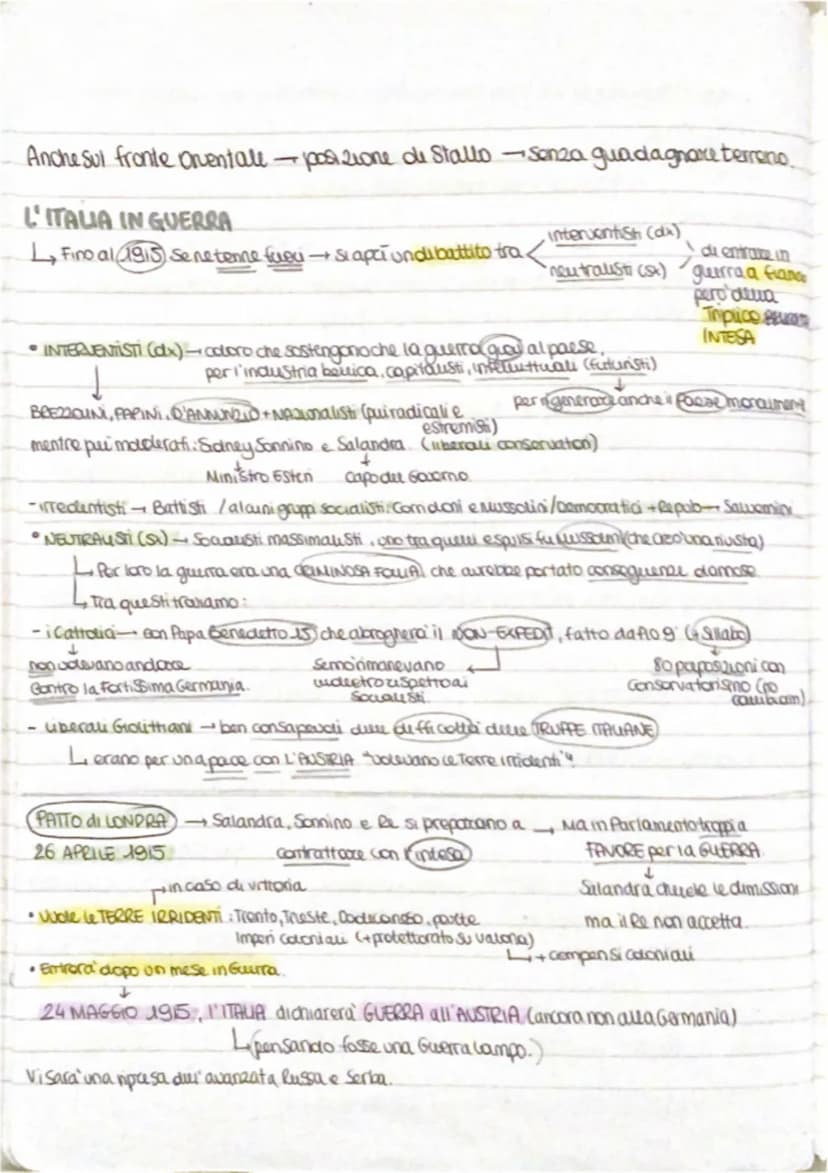 Anche sul fronte orientale → posizione di stallo → senza guadagnare terreno.
L'ITALIA IN GUERRA
↳ Fino al 1915 se ne tenne fuori → si aprì un dibattito tra < interventisti (dx)
neutralisti (sx)
di entrare in
guerra a fianco
però della
Triplice
INTESA
• INTERVENTISTI (dx) → coloro che sostengono che la guerra al paese,
per l'industria bellica, capitalisti, intellettuali (futuristi)
per rigenerare anche il Paese moralment
BREZZOLINI, PAPINI, D'ANNUNZIO + Nazionalisti (più radicali e
estremisti)
mentre più moderati: Sidney Sonnino e Salandra. (liberali conservatori)
Ministro Esteri Capo del Governo
- irredentisti → Battisti / alcuni gruppi socialisti: Corridoni e Mussolini / Democratici + Repub → Salvemini
• NEUTRALISTI (sx) → Socialisti massimalisti, uno tra quelli espulsi fu Mussolini (che creò una rivista)
↳ Per loro la guerra era una CRIMINOSA FOLLIA, che avrebbe portato conseguenze dannose
↳ Tra questi troviamo:
- i Cattolici → con Papa Benedetto 15 che abrogherà il NON-EXPEDIT, fatto da Pio 9 (+ Sillabo)
non volevano andare
contro la fortissima Germania.
Semò rimanevano
indietro rispetto ai
Socialisti
80 proposizioni con
Conservatorismo (no
cambiam)
- Liberali Giolittiani → ben consapevoli delle difficoltà delle TRUPPE ITALIANE
↳ erano per una pace con L'AUSTRIA "volevano le Terre irridenti"
PATTO di LONDRA → Salandra, Sonnino e Re si preparano a → Ma in Parlamento troppi a
26 APRILE 1915 contrattare con l'intesa FAVORE per la GUERRA.
in caso di vittoria
Salandra chiede le dimissioni
• Vuole le TERRE IRRIDENTI: Trento, Trieste, Dodecaneso, parte ma il Re non accetta.
Imperi coloniali (+ protettorato su Valona)
↳ + compensi coloniali
• Entrerà dopo un mese in Guerra.
24 MAGGIO 1915, l'ITALIA dichiarerà GUERRA all'AUSTRIA (ancora non alla Germania)
↳ (pensando fosse una Guerra lampo.)
Vi sarà una ripresa dell'avanzata Russa e Serba.